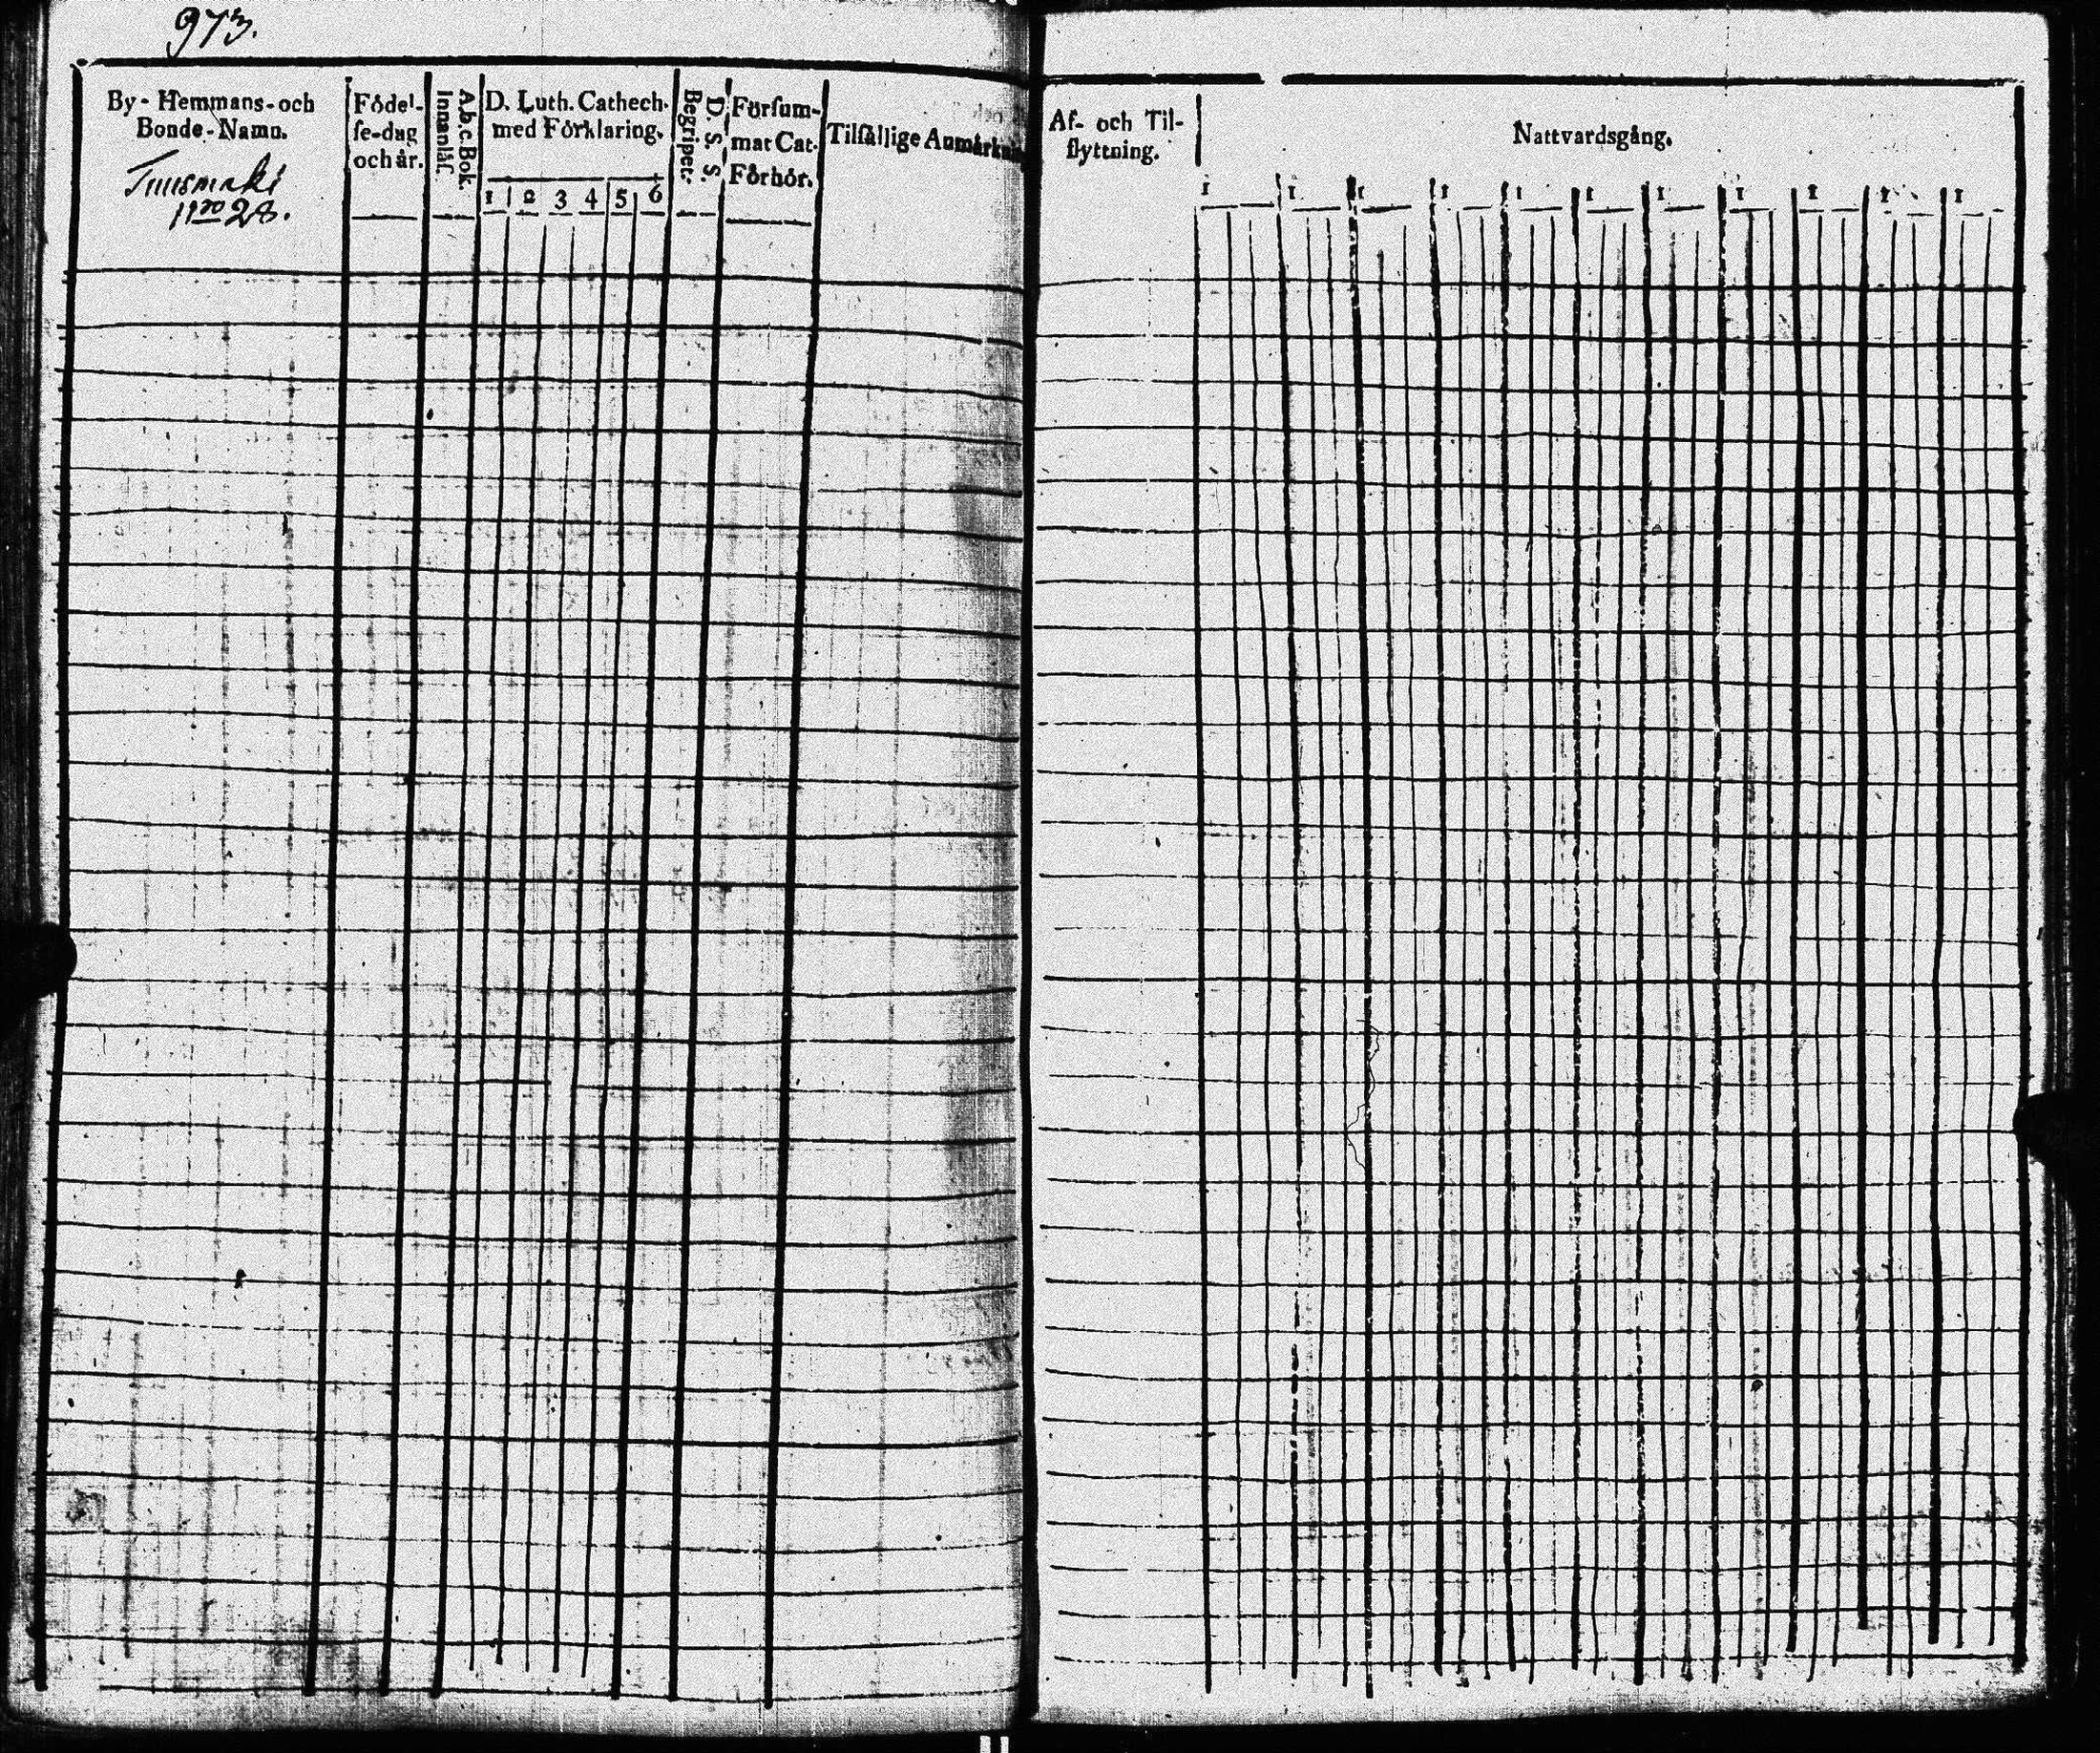 973.
By- Hemmans- och
Bonde-Namn.
Tuusmäki
N:ro 28.
Födel-
ſe-dag
och år.
A.b.c. Bok.
Innanläſ.
D. Luth. Cathech.
med Förklaring.
1 2 3 4 5 6
D. S. S.
Begripet.
Förſum-
mat Cat.
Förhör.
Tilfällige Anmärkni
Af- och Til-
flyttning.
Nattvardsgång.
1 1 1 1 1 1 1 1 1 1 1